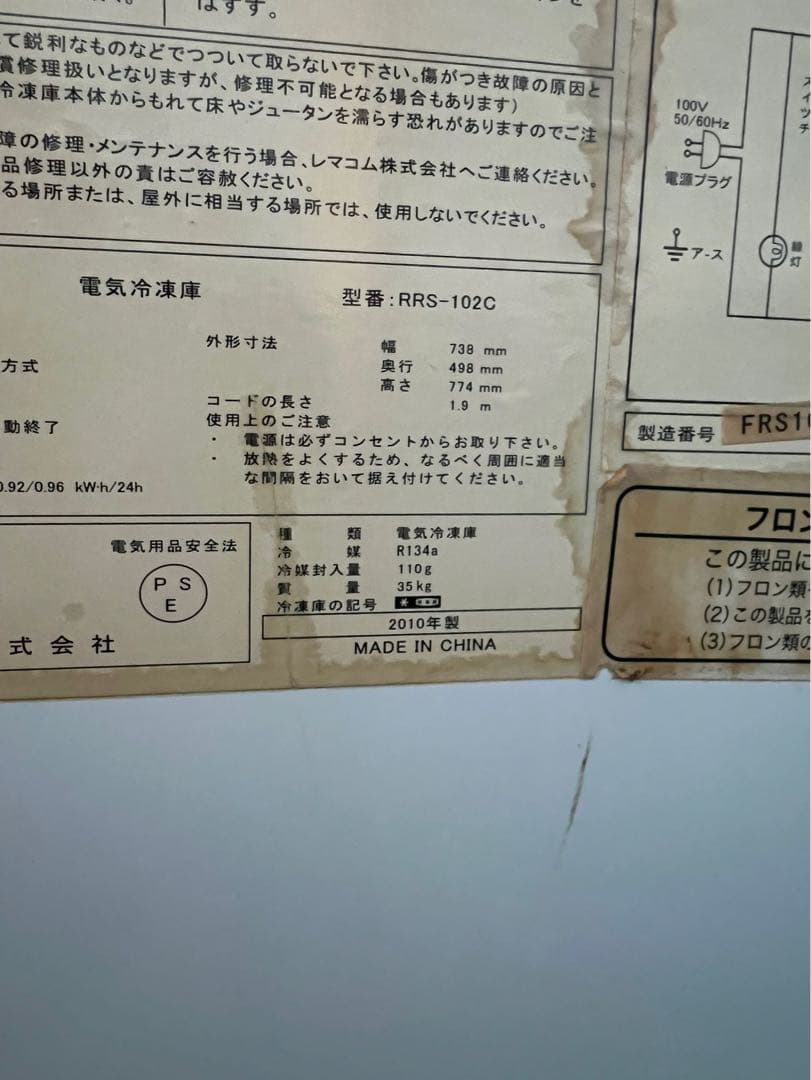 はずす。
て鋭利なものなどでつついて取らないで下さい。傷がつき故障の原因と
償修理扱いとなりますが、修理不可能となる場合もあります)
冷凍庫本体からもれて床やジュータンを濡らす恐れがありますのでご注
障の修理・メンテナンスを行う場合、レマコム株式会社へご連絡ください。
品修理以外の責はご容赦ください。
る場所または、屋外に相当する場所では、使用しないでください。
100V
50/60Hz
電源プラグ
アース
スイッチ
緑灯
電気冷凍庫 型番:RRS-102C
方式
動終了
0.92/0.96 kW·h/24h
外形寸法 幅 738 mm
奥行 498 mm
高さ 774 mm
コードの長さ 1.9 m
使用上のご注意
・ 電源は必ずコンセントからお取り下さい。
・ 放熱をよくするため、なるべく周囲に適当
な間隔をおいて据え付けてください。
製造番号 FRS10
電気用品安全法
PS
E
式会社
種類 電気冷凍庫
冷媒 R134a
冷媒封入量 110g
質量 35kg
冷凍庫の記号
2010年製
MADE IN CHINA
フロン
この製品に
(1)フロン類
(2)この製品を
(3)フロン類の